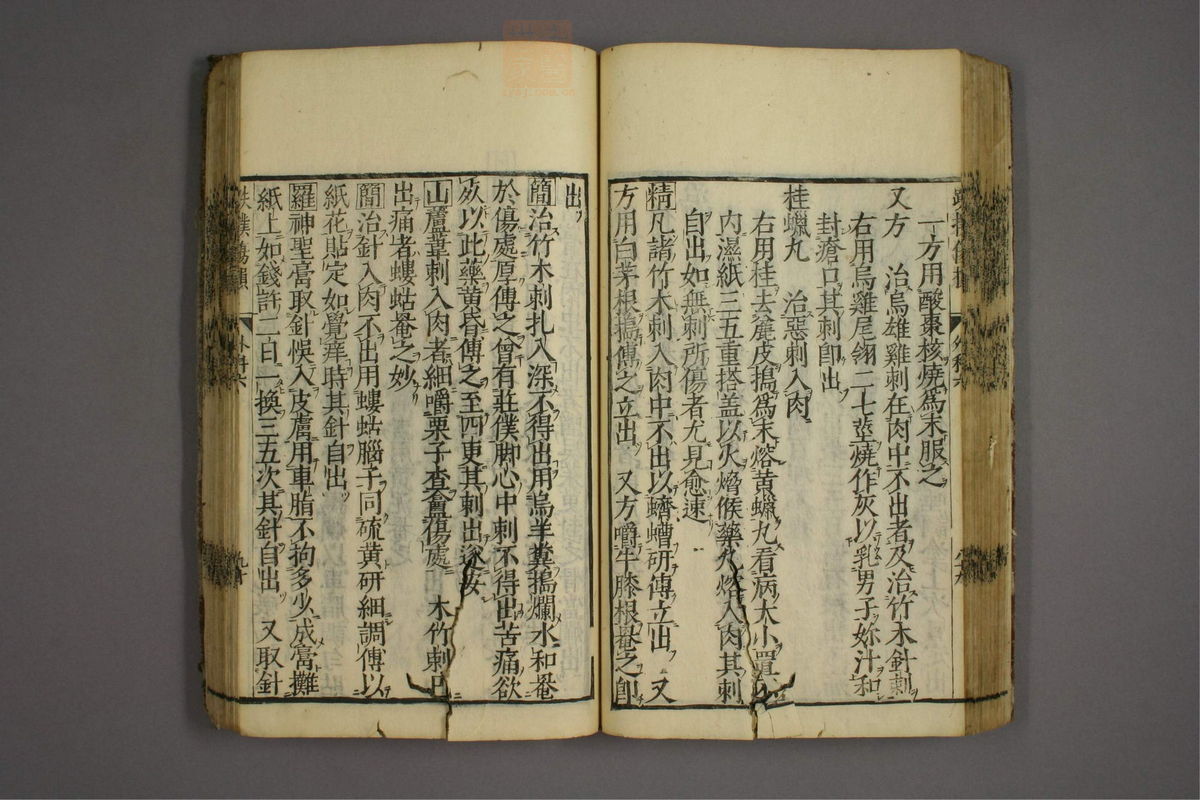 一方用酸棗核燒爲末服之
又方　治烏雄雞刺在肉中不出者及治竹木針刺
右用烏雞尾翎二七莖燒作灰以乳男子妳汁和
封瘡口其刺即出
桂蠟丸　治惡刺入肉
右用桂去麄皮搗爲末熔黃蠟丸看病大小置
内濕紙三五重搭盖以火熁候藥丸熔入肉其刺
自出如無刺所傷者尤見愈速
精凡諸竹木刺入肉中不出以蠐螬研傅立出　又
方用白茅根搗傅之立出　又方嚼牛膝根菴之即
出
簡治竹木刺扎入深不得出用烏羊糞搗爛水和菴
於傷處厚傅之曾有莊僕脚心中刺不得出苦痛欲
死以此藥黄昏傅之至四更其刺出遂安
山蘆葦刺入肉者細嚼栗子査盦傷處　木竹刺已
出痛者螻蛄菴之妙
簡治針入肉不出用螻蛄腦子同硫黄研細調傅以
紙花貼定如覺痒時其針自出
羅神聖膏取針悞入皮膚用車脂不拘多少成膏攤
紙上如錢許二日一換三五次其針自出　又取針
外科六
九十